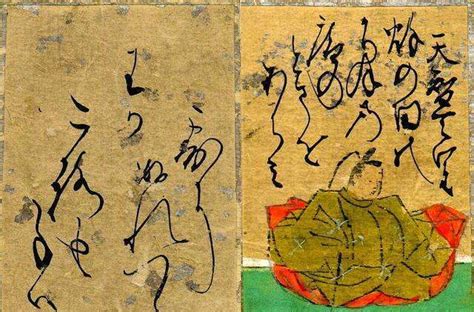 天智天皇
秋の田の
かりほ乃
庵の
とまを
あらみ
わか
ころも
てハ
露に
ぬれつゝ